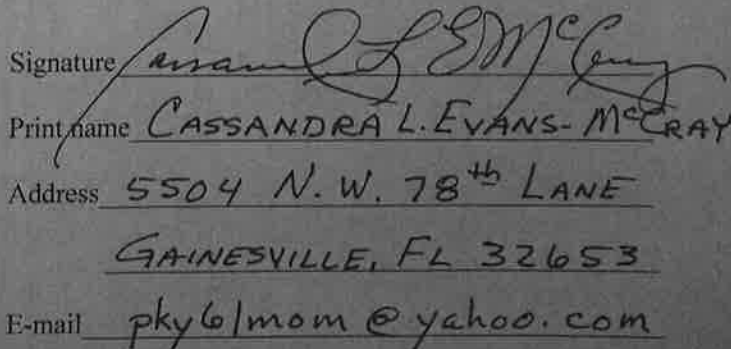 Signature Cassandra L E McCray
Print name CASSANDRA L. EVANS-McCRAY
Address 5504 N.W. 78th LANE
GAINESVILLE, FL 32653
E-mail pky61mom@yahoo.com